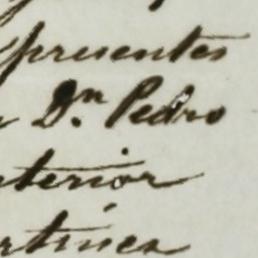 presentes
Dn. Pedro
nterior
rtines